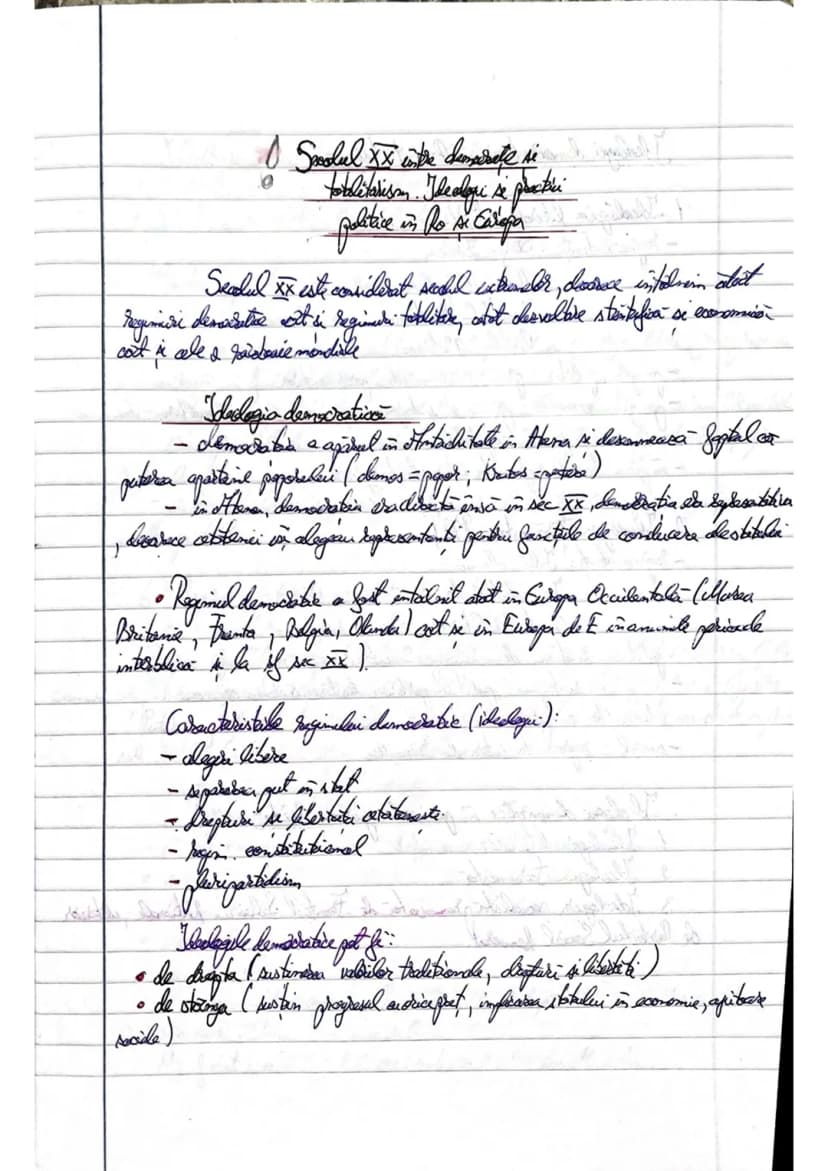 ! Secolul XX între democrație și
totalitarism. Ideologii și practici
politice în Ro și Europa
Secolul XX este considerat secolul extremelor, deoarece întâlnim atât
regimuri democratice cât și regimuri totalitare, atât dezvoltare științifică și economică
cât și cele 2 războaie mondiale
Ideologia democratică
- democrația a apărut în Antichitate în Atena și desemnează faptul că
puterea aparține poporului (demos = popor; Kratos = putere)
- în Atena, democrația era directă însă în sec XX, democrația era reprezentativă
, deoarece cetățenii își alegeau reprezentanți pentru funcțiile de conducere ale statului
• Regimul democratic a fost întâlnit atât în Europa Occidentală (Marea
Britanie, Franța, Belgia, Olanda) cât și în Europa de E în anumite perioade
interbelică și la sf sec XX).
Caracteristicile regimului democratic (ideologii):
- alegeri libere
- separarea put în stat
- drepturi și libertăți cetățenești
- regim constituțional
- pluripartidism
Ideologiile democratice pot fi:
• de dreapta (susținerea valorilor tradiționale, drepturi și libertăți)
• de stânga (susțin progresul cu orice preț, implicarea statului în economie, ajutoare
sociale)